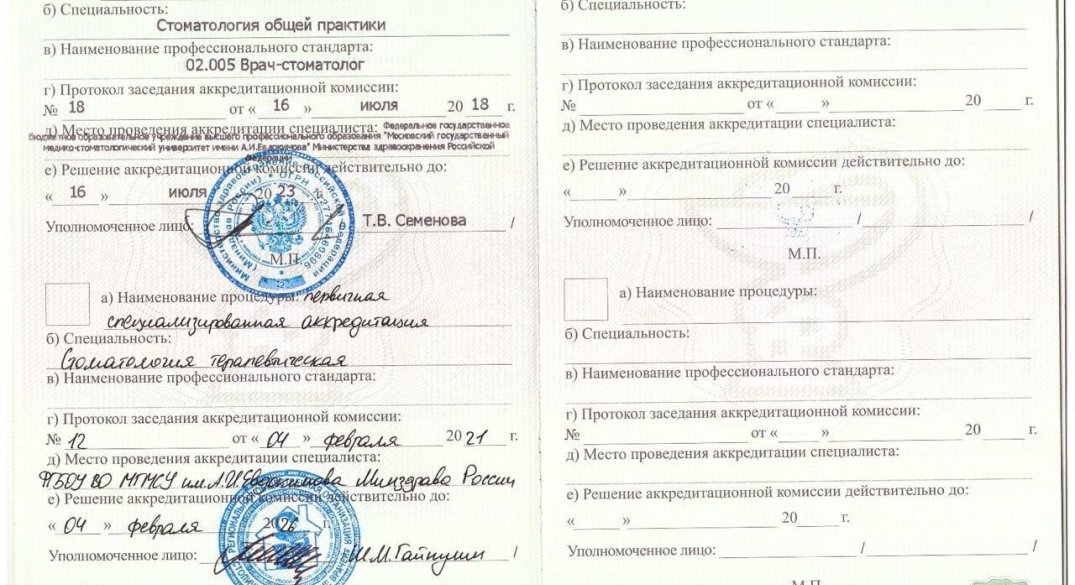 б) Специальность:
Стоматология общей практики
в) Наименование профессионального стандарта:
02.005 Врач-стоматолог
г) Протокол заседания аккредитационной комиссии:
№ 18 от « 16 » июля 20 18 г.
д) Место проведения аккредитации специалиста: Федеральное государственное
бюджетное образовательное учреждение высшего профессионального образования "Московский государственный
медико-стоматологический университет имени А.И.Евдокимова" Министерства здравоохранения Российской
Федерации
е) Решение аккредитационной комиссии действительно до:
« 16 » июля 20 23
Уполномоченное лицо: Т.В. Семенова /
М.П.
а) Наименование процедуры: первичная
специализированная аккредитация
б) Специальность:
Стоматология терапевтическая
в) Наименование профессионального стандарта:
г) Протокол заседания аккредитационной комиссии:
№ 12 от « 04 » февраля 20 21 г.
д) Место проведения аккредитации специалиста:
ФГБОУ ВО МГМСУ им. А.И. Евдокимова Минздрава России
е) Решение аккредитационной комиссии действительно до:
« 04 » февраля 2026 г.
Уполномоченное лицо: /
б) Специальность:
в) Наименование профессионального стандарта:
г) Протокол заседания аккредитационной комиссии:
№ от « » 20 г.
д) Место проведения аккредитации специалиста:
е) Решение аккредитационной комиссии действительно до:
« » 20 г.
Уполномоченное лицо: / /
М.П.
а) Наименование процедуры:
б) Специальность:
в) Наименование профессионального стандарта:
г) Протокол заседания аккредитационной комиссии:
№ от « » 20 г.
д) Место проведения аккредитации специалиста:
е) Решение аккредитационной комиссии действительно до:
« » 20 г.
Уполномоченное лицо: / /
М.П.